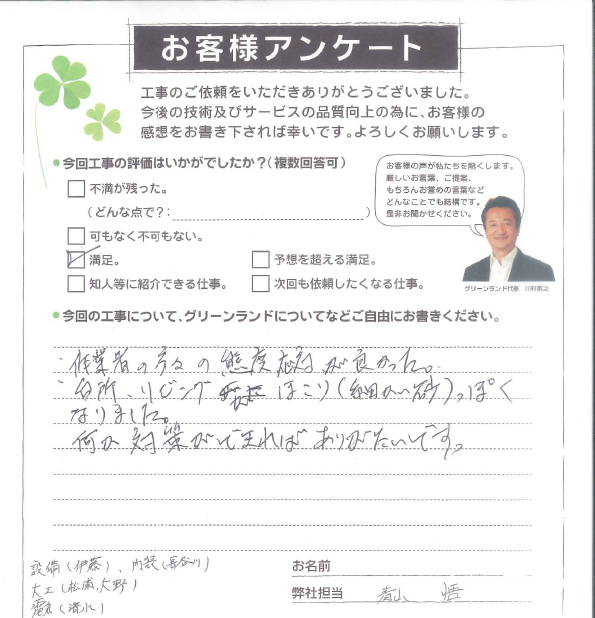 お客様アンケート
工事のご依頼をいただきありがとうございました。
今後の技術及びサービスの品質向上の為に、お客様の
感想をお書き下されば幸いです。よろしくお願いします。
●今回工事の評価はいかがでしたか?(複数回答可)
不満が残った。
(どんな点で?: )
可もなく不可もない。
満足。
予想を超える満足。
知人等に紹介できる仕事。
次回も依頼したくなる仕事。
お客様の声が私たちを熱くします。
厳しいお言葉、ご提案、
もちろんお誉めの言葉など
どんなことでも結構です。
是非お聞かせください。
グリーンランド代表 川村英之
●今回の工事について、グリーンランドについてなどご自由にお書きください。
・作業者の方々の態度応対が良かった。
・台所、リビング ほこり(細かい砂)っぽく
なりました。
何か対策ができればありがたいです。
設備(伊藤)、内装(長谷川)
大工(松浦、大野)
電気(清水)
お名前
弊社担当 青山 悟